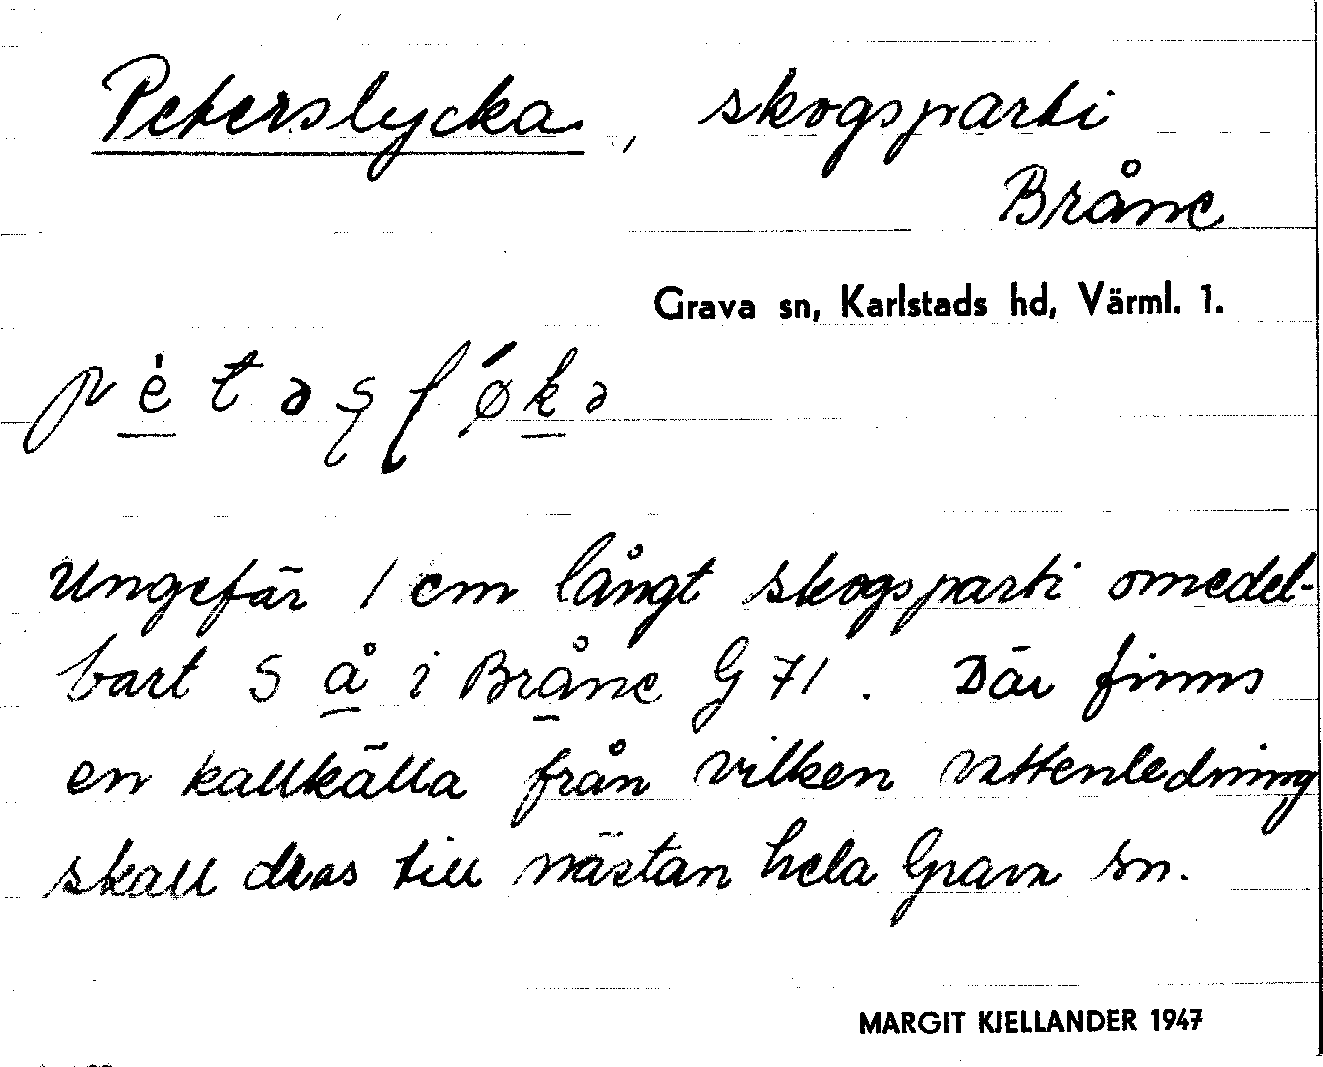 Peterslycka, skogsparti
Bråne
Grava sn, Karlstads hd, Värml. 1.
Ungefär 1 cm långt skogsparti omedel-
bart S å i Bråne G 71. Där finns
en kallkälla från vilken vattenledning
skall dras till nästan hela Grava sn.
MARGIT KJELLANDER 1947